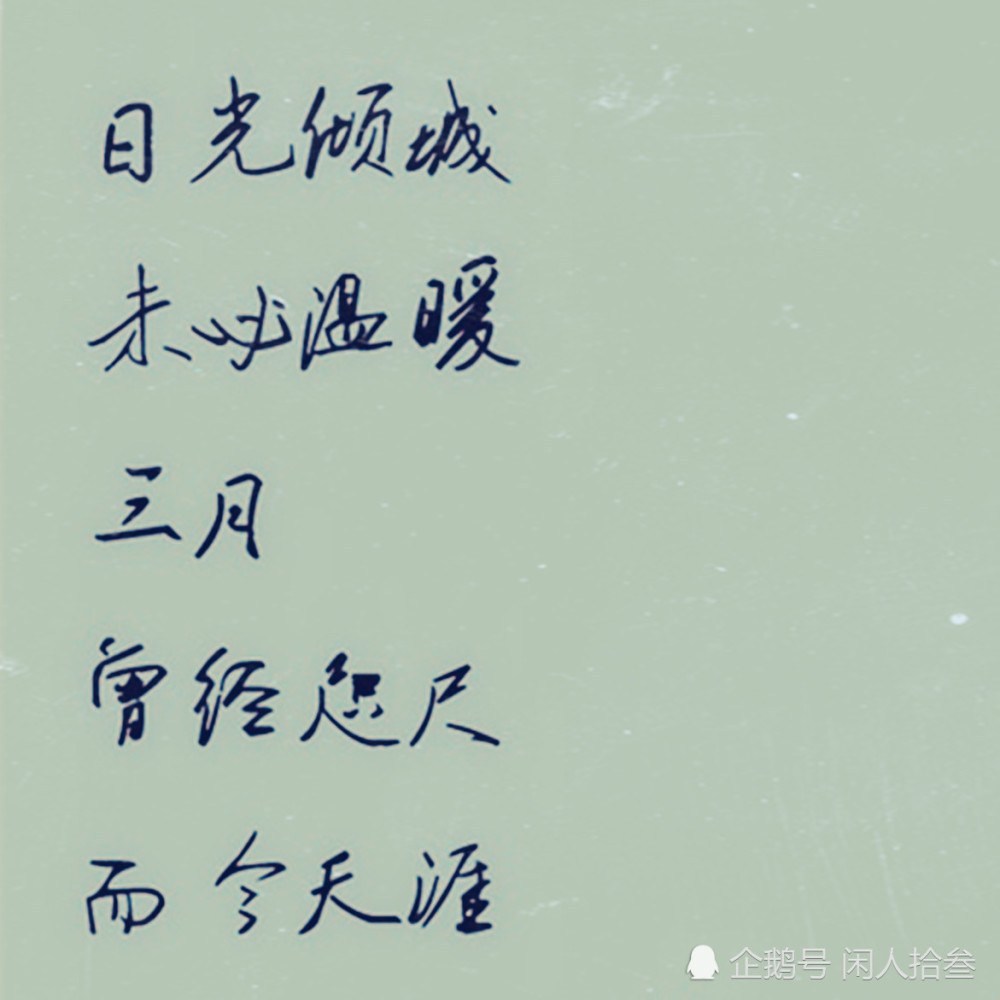 日光倾城
未必温暖
三月
曾经咫尺
而今天涯
企鹅号 闲人拾叁